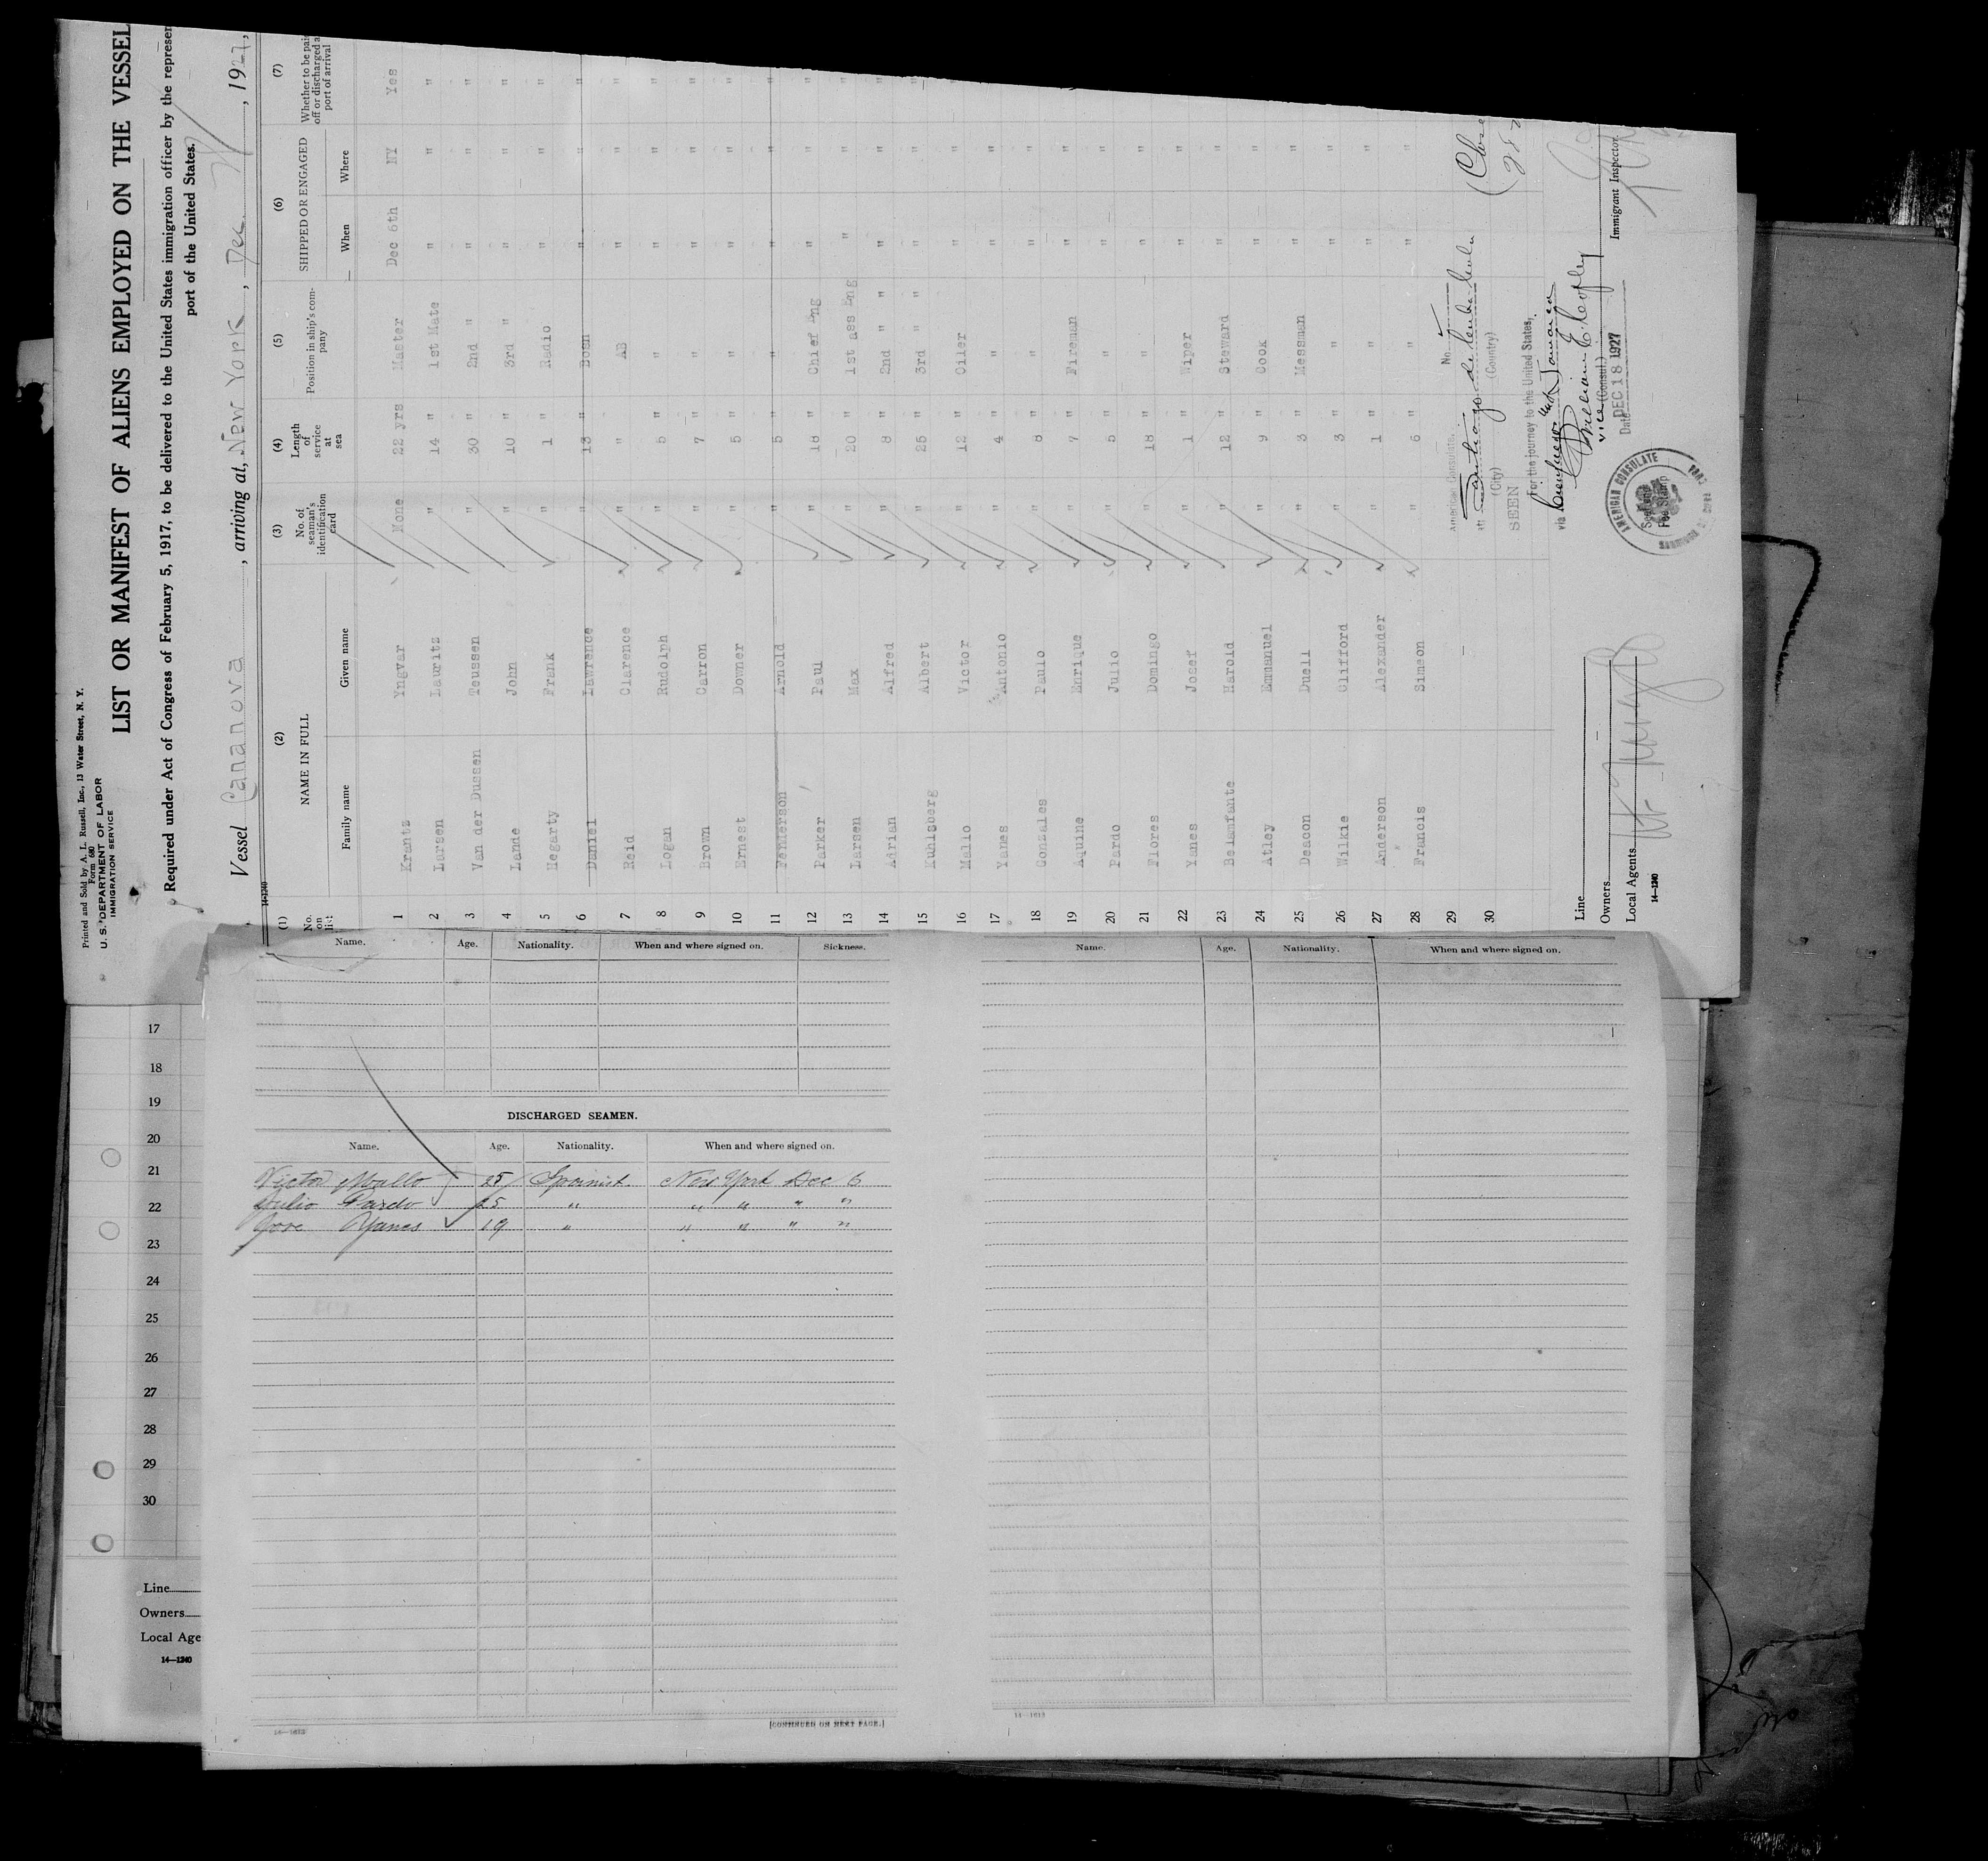 Printed and Sold by A. L. Russell, Inc., 13 Water Street, N. Y.
Form 680
U. S. DEPARTMENT OF LABOR
IMMIGRATION SERVICE
LIST OR MANIFEST OF ALIENS EMPLOYED ON THE VESSEL
Required under Act of Congress of February 5, 1917, to be delivered to the United States immigration officer by the represen
port of the United States.
Vessel Cananova, arriving at, New York, Dec. 1927,
14-1240
(1) (2) (3) (4) (5) (6) (7)
No. on list NAME IN FULL No. of seaman's identification card Length of service at sea Position in ship's company SHIPPED OR ENGAGED Whether to be paid off or discharged at port of arrival
Family name Given name When Where
1 Krantz Yngvar None 22 yrs Master Dec 6th NY Yes
2 Larsen Lauritz " 14 " 1st Mate " " "
3 Van der Dussen Teussen " 30 " 2nd " " " "
4 Lande John " 10 " 3rd " " " "
5 Hegarty Frank " 1 " Radio " " "
6 Daniel Lawrence " 13 " Bosn " " "
7 Reid Clarence " " AB " " "
8 Logan Rudolph " 5 " " " " "
9 Brown Carron " 7 " " " " "
10 Ernest Downer " 5 " " " " "
11 Fennerson Arnold " 5 " " " " "
12 Parker Paul " 18 " Chief Eng " " "
13 Larsen Max " 20 " 1st ass Eng " " "
14 Adrian Alfred " 8 " 2nd " " " " "
15 Kuhlsberg Albert " 25 " 3rd " " " " "
16 Mallo Victor " 12 " Oiler " " "
17 Yanes Antonio " 4 " " " " "
18 Gonzales Paulo " 8 " " " "
19 Aquine Enrique " 7 " Fireman " "
20 Pardo Julio " 5 " " " "
21 Flores Domingo " 18 " " " "
22 Yanes Josef " 1 " Wiper " "
23 Belamfante Harold " 12 " Steward " "
24 Atley Emmanuel " 9 " Cook " "
25 Deacon Duell " 3 " Messman " "
26 Wilkie Clifford " 3 " " " "
27 Anderson Alexander " 1 " " " "
28 Francis Simeon " 6 " " " "
29
30
American Consulate, No.
at Santiago de Cuba Cuba
(City) (Country)
SEEN
For the journey to the United States,
via Jamaica
William E. Copley
Vice (Consul.)
Date DEC 18 1927
AMERICAN CONSULATE
Fee Stamp
CUBA
(Close
Immigrant Inspector
Line
Owners
Local Agents
14-1240
Name. Age. Nationality. When and where signed on. Sickness.
DISCHARGED SEAMEN.
Name. Age. Nationality. When and where signed on.
Victor Mallo 25 Spanish New York Dec 6
Julio Pardo 25 " " " " "
Jose Yanes 19 " " " " "
16—1613
[CONTINUED ON NEXT PAGE.]
Name. Age. Nationality. When and where signed on.
16—1613
17
18
19
20
21
22
23
24
25
26
27
28
29
30
Line
Owners
Local Age
14—1240